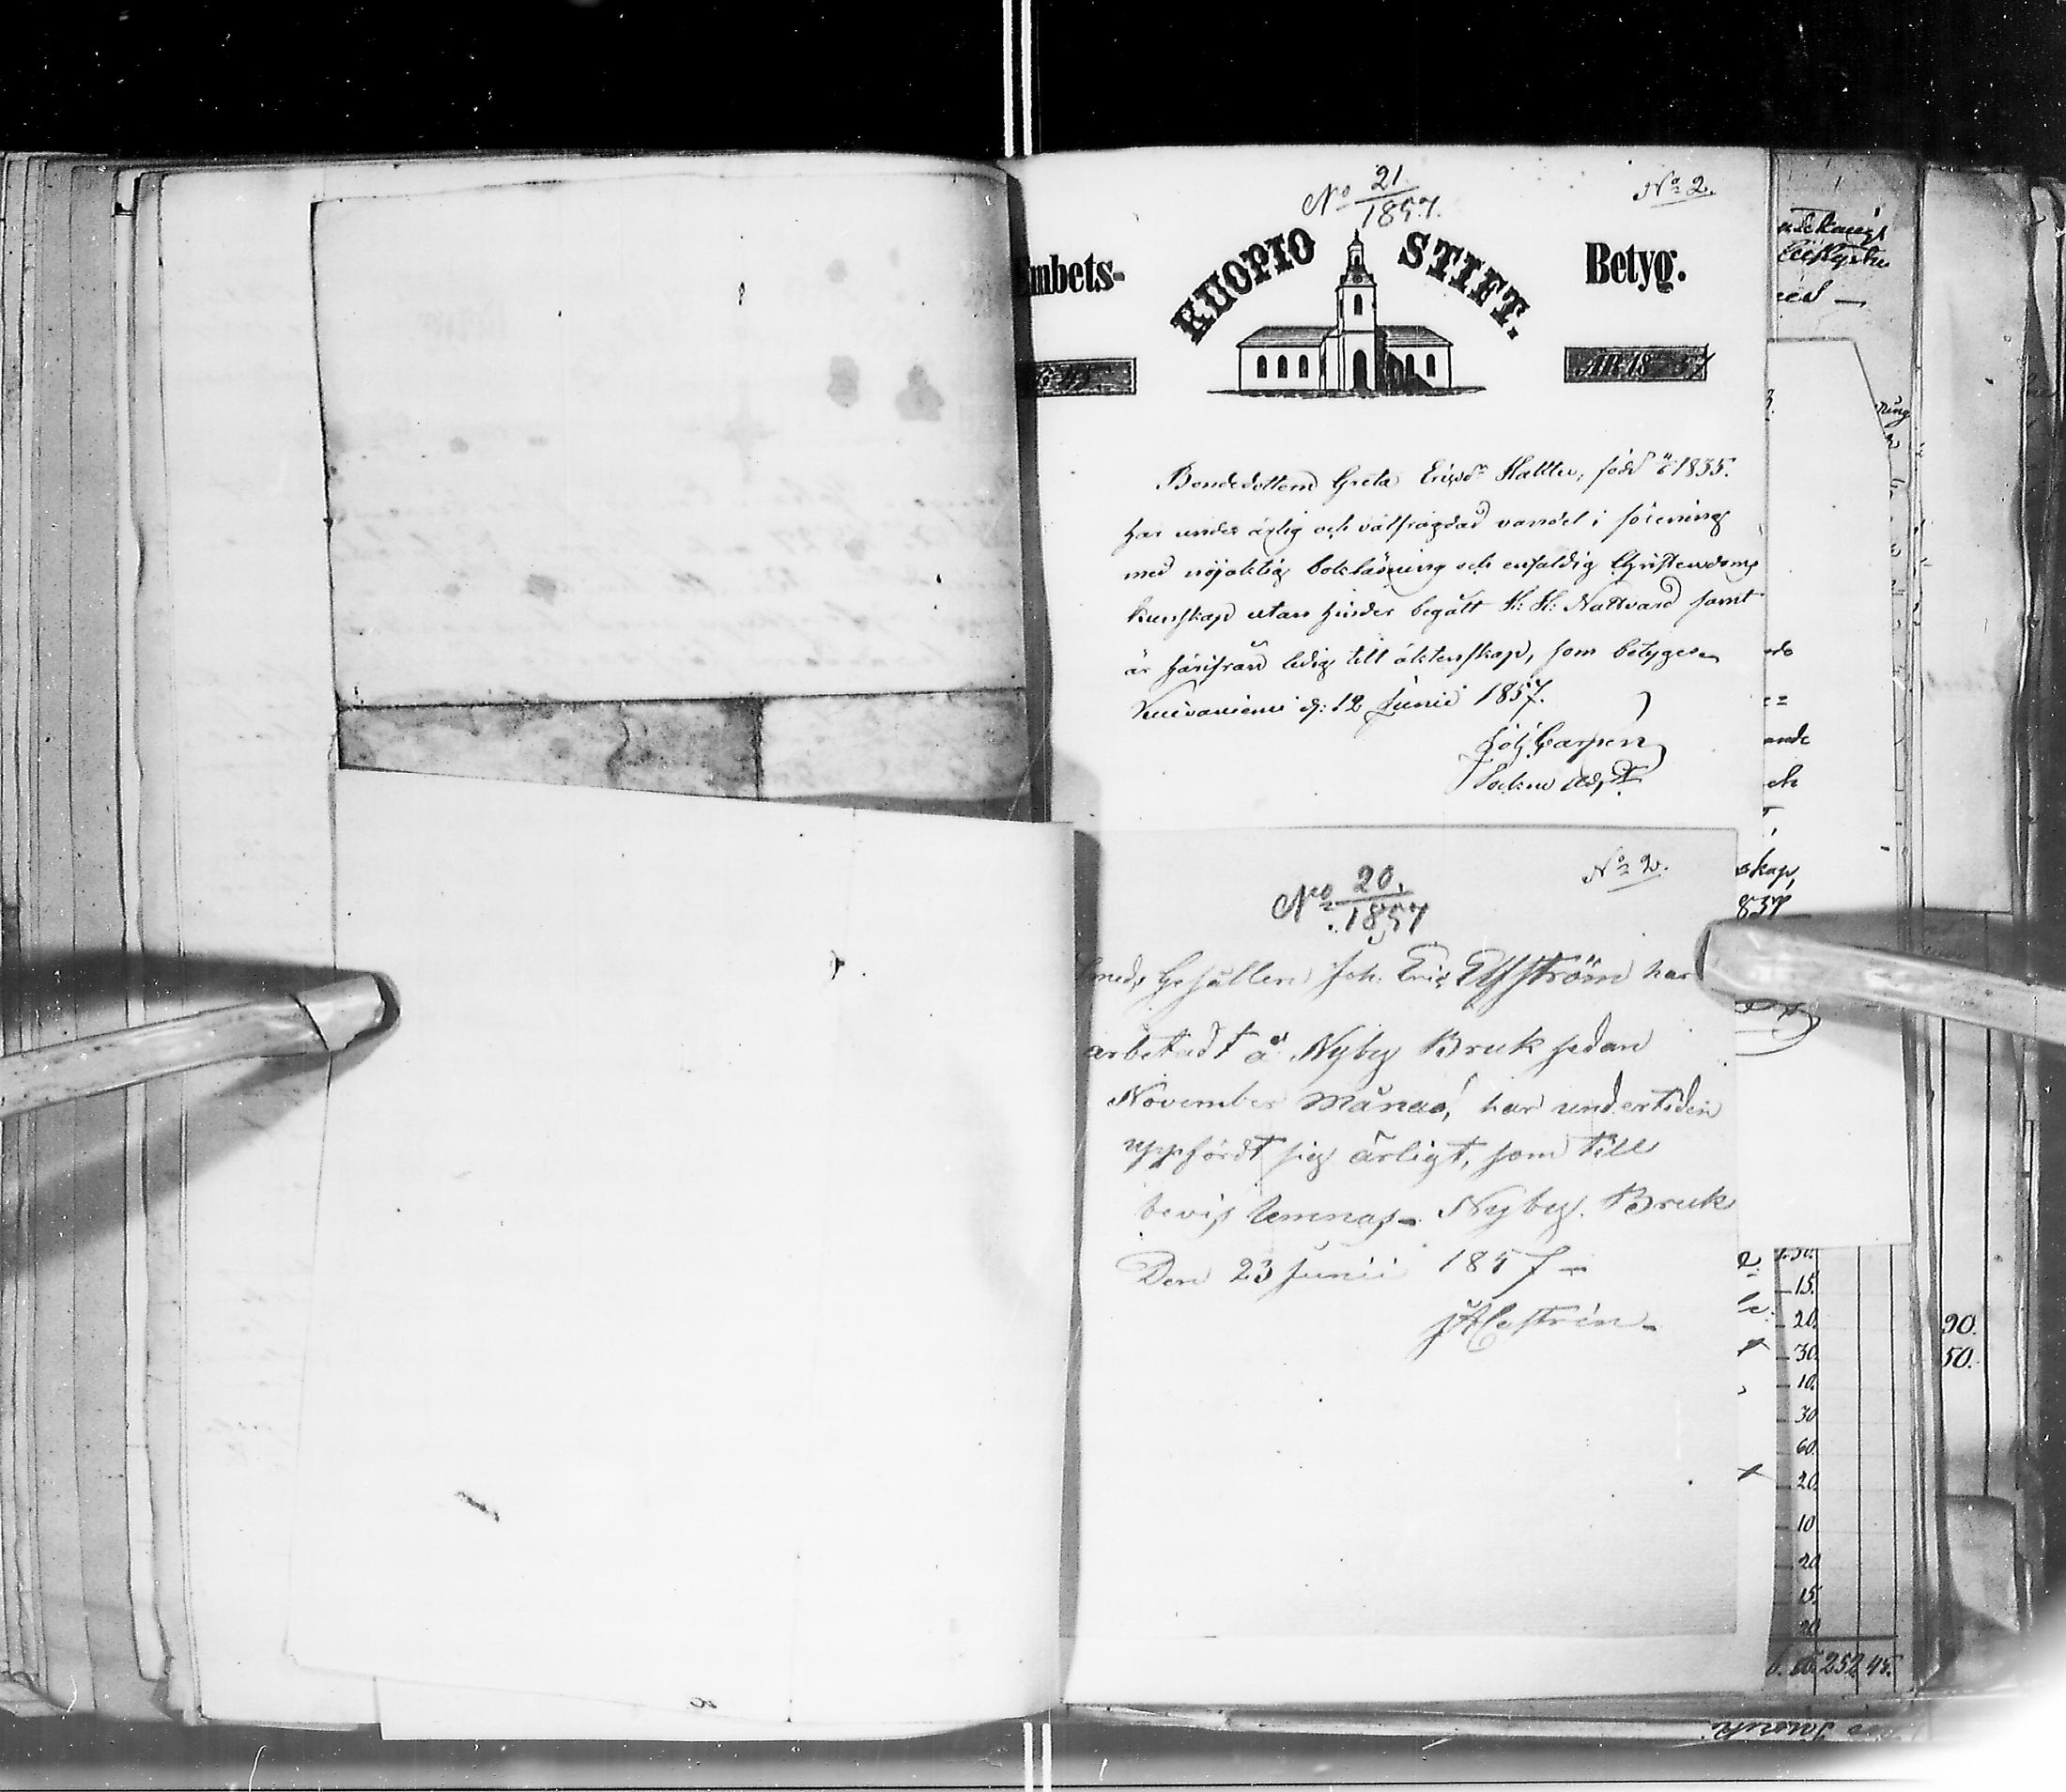 No 21/1857.
No 2.
mbets-
KUOPIO STIFT.
Betyg.
ÅR 1857
Bondedottern Greta Ericsdr född 1835.
har under ärlig och välfrägdad vandel i förening
med nöjaktig bokläsning och enfaldig Christendoms
kunskap utan hinder begått H: H: Nattvard samt
är härifrån ledig till äktenskap, som betygas
Kuivaniemi d: 12 Junii 1857.
Joh Carpen
Socken Adjt
No 20./1857
No 2.
smeds Gesällen Joh. Eric Elfström har
arbetadt å Nyby Bruk sedan
November Månad, har undertiden
uppfördt sig ärligt, som till
bevis lemnas - Nyby Bruk
Den 23 Junii 1857 -
skap,
ande
och
15.
20.
30.
10.
30
60.
20.
10
20
15.
20
252 45.
90.
50.